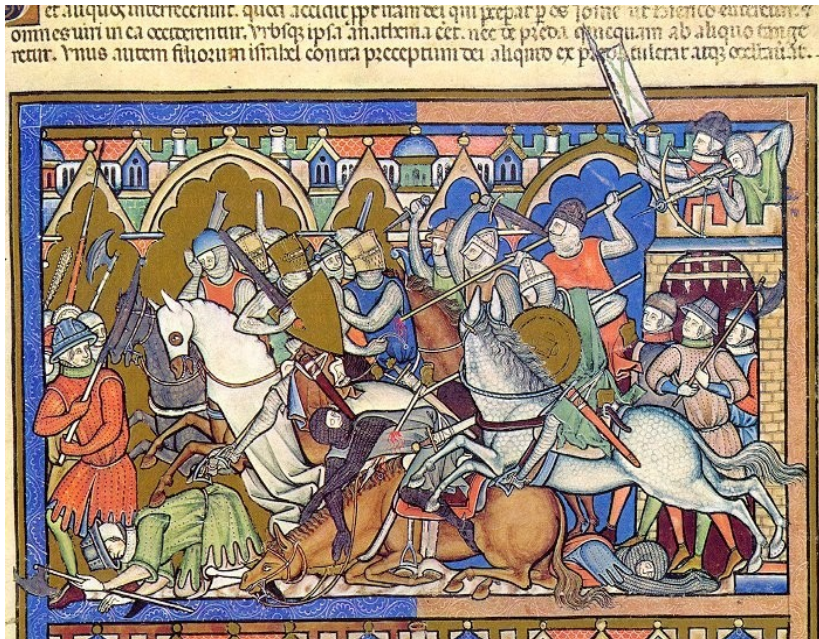 et aliquos interfecerunt. quod accidit ppt iram dei qui p os Iosue ut Ierico &
omnes uiri in ea occiderentur. Vrbsq; ipsa anathema eet. nec de preda quicquam ab aliquo tange
retur. Vnus autem filiorum israhel contra preceptum dei aliquid ex tulerat atq;